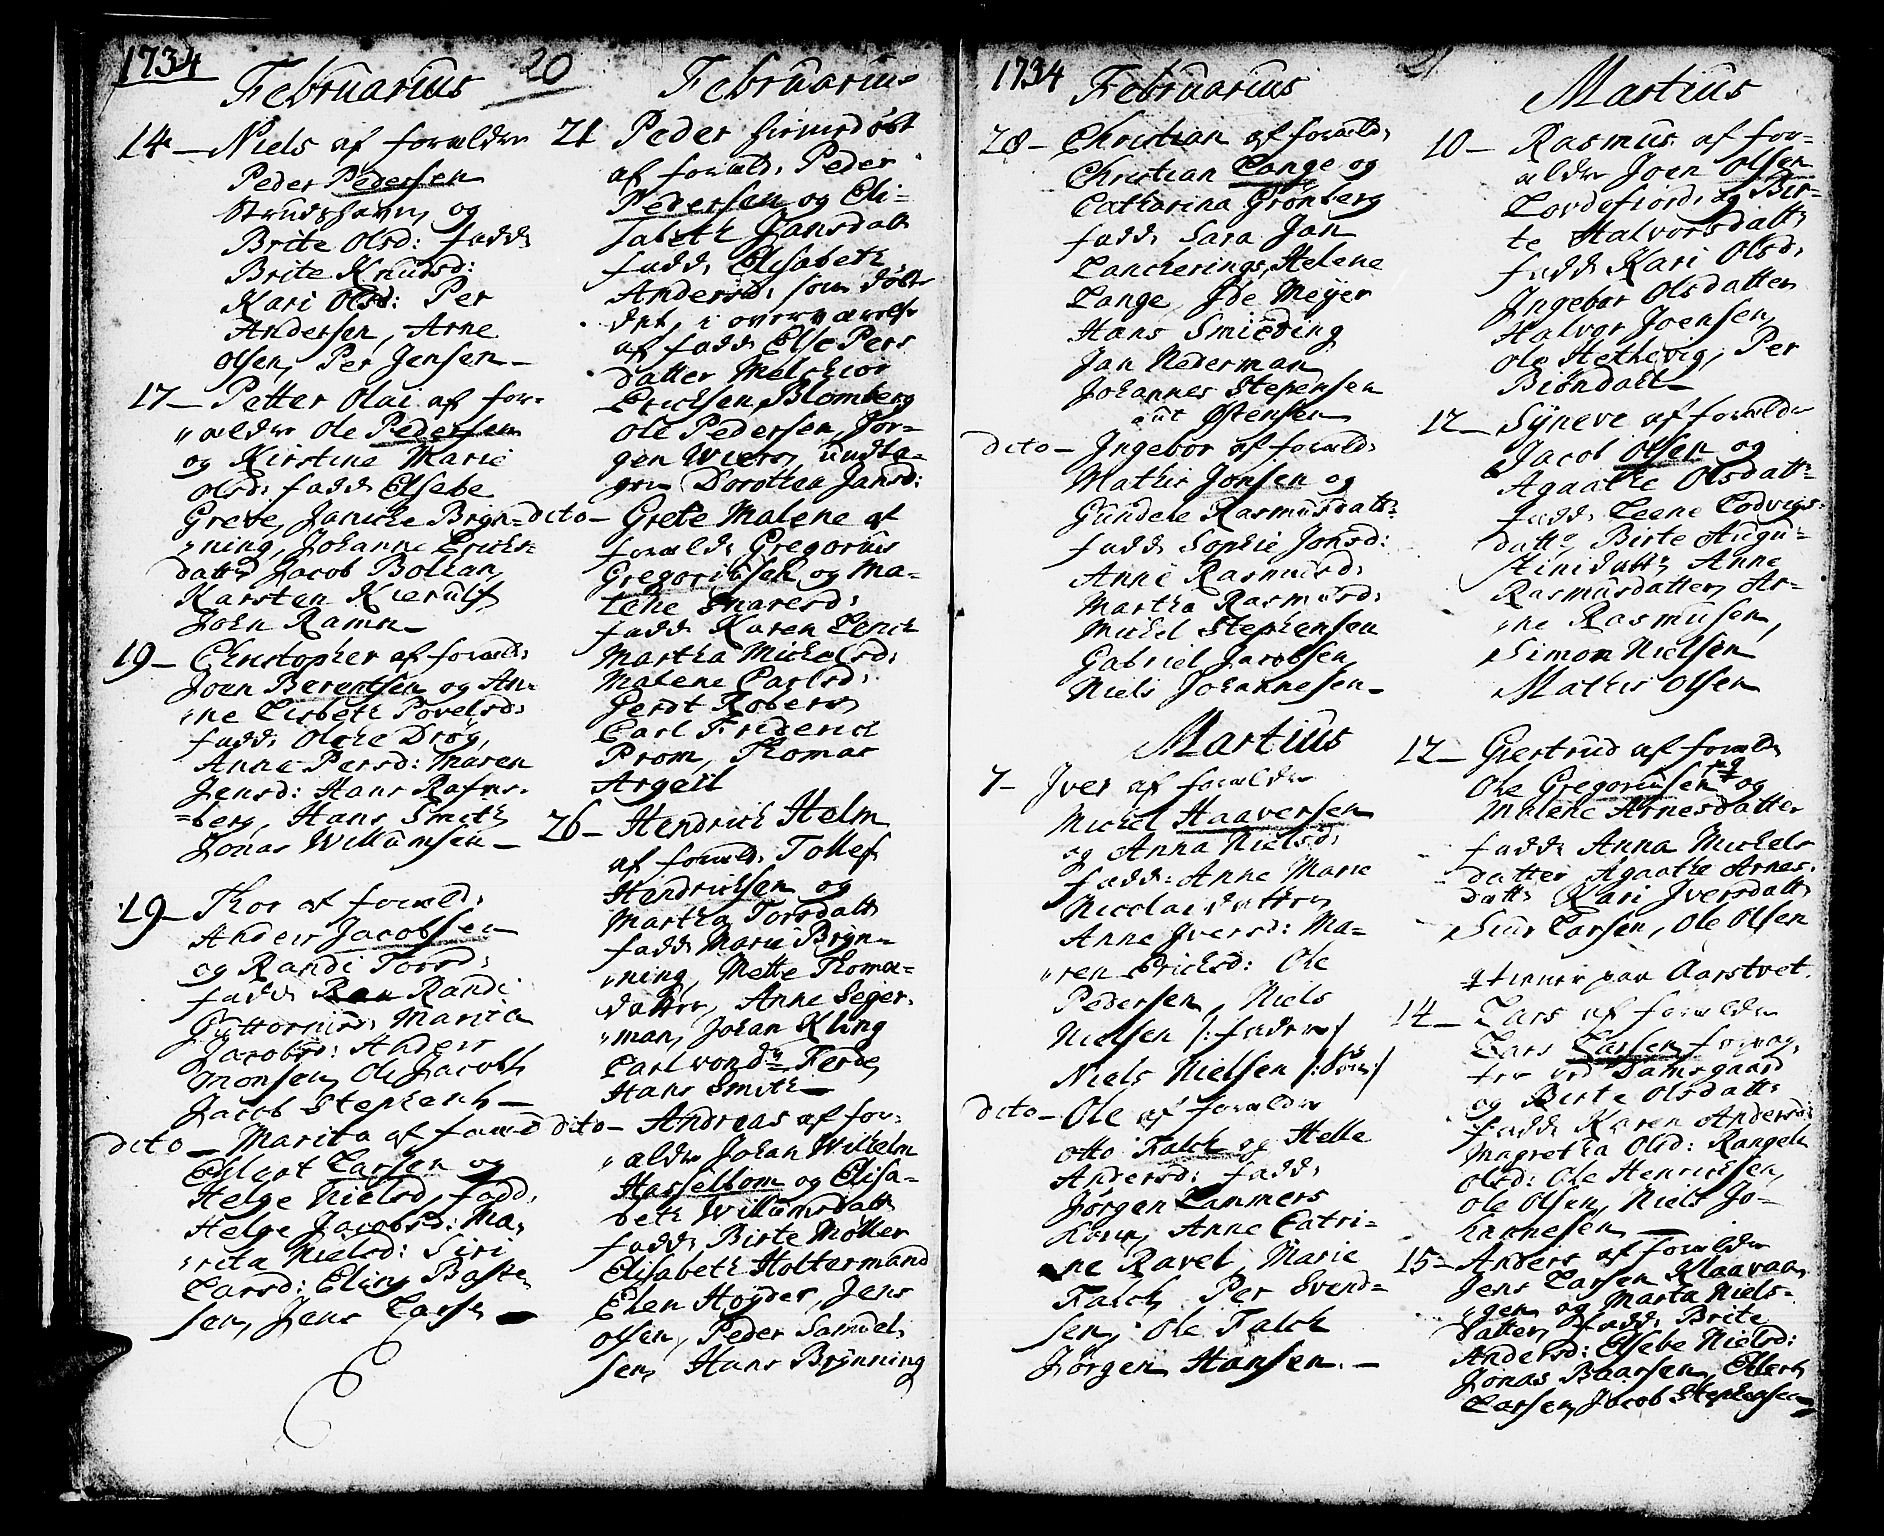 1734
20
Februarius
14 – Niels af forældre
Peder Pedersen
Strudshavn, og
Brite Olsd: fadd:
Brite Knudsd:
Kari Olsd: Per
Andersen, Arne
Olsen, Per Jensen –
17 – Petter Olai af for-
ældre Ole Pedersen
og Kirstine Marie
Olsd: fadd: Elsebe
Greve, Janicke Bryn-
ning, Johanne Erichs-
datter Jacob Boltan,
Karsten Kierulf
John Ramn –
19 – Christopher af foræld:
Joen Berentsen og An-
ne Lisbeth Povelsd:
fadd: Olche Drög,
Anne Persd: Maren
Jensd: Hans Rafns-
berg, Hans Smith
Jonas Willumsen –
19 – Thor af foræld:
Anders Jacobsen
og Randi Torsd:
fadd: Randi
Guttormsd: Marita
Jacobsd: Anders
Monsen, Ole Jacobs
Jacob Stephens –
dito – Marita af foræld
Lassen og
Helge Nielsd, fadd:
Helge Jacobsd: Ma-
rita Nielsd: Siri
Larsd: Eling Baste-
sen, Jens Larsen –
Februarius
21 Peder hiemdøbt
af foræld: Peder
Pedersen og Eli-
sabeth Jansdatt:
fadd: Elisabeth
Andersd: som døbte
det, i overværelse
af fadd: Else Pers
datter Melchior
Erichsen Blomberg
Ole Pedersen, Jør-
gen Wiers, undta-
gen Dorothea Jansd:
dito – Grete Malene af
foræld: Gregorius
Gregoriusen og Ma-
lene Snaresd:
fadd: Karen Lerich
Martha Michelsd:
Malene Carlsd:
Gerdt Roberg
Carl Friderich
Prom, Thomas
Argeil
26 – Hendrich Helm
af foræld: Tollef
Hendrichsen og
Martha Torsdatt:
fadd: Marie Bryn-
ning, Mette Thomæ-
datter, Anne Seger-
man, Johan Kling
Carl von der Ferde
Hans Smith –
dito – Andreas af for-
ældre Johan Wilhelm
Hasselbom og Elisa-
beth Willumsdatt:
fadd: Birte Møller
Elisabeth Holtermand
Elen Höyder, Jens
Olsen, Peder Samuel-
sen, Hans Brynning
1734
21
Februarius
28 – Christian af foræld:
Christian Lange og
Catharina Grönberg
fadd: Sara Jan
Lancherings, Helene
Lange, Ide Meyer
Hans Smieding
Jan Nederman
Johannes Stephensen
aut Østensen
dito – Ingebor af foræld:
Mathis Jonsen og
Gundele Rasmusdatt:
fadd: Sophie Jonsd:
Anne Rasmusd:
Martha Rasmusd:
Michel Stephensen
Gabriel Jacobsen
Niels Johannesen –
Martius
7 – Iver af forældre
Michel Haaversen
og Anna Nielsd:
fadd: Anne Marie
Nicolai datter,
Anne Iversd: Ma-
ren Erichsd: Ole
Pedersen, Niels
Nielsen /: faderen /
Niels Nielsen /: Søn: /
dito – Ole af forældre
Otto Falch og Helle
Andersd: fadd:
Jørgen Lammers
Anne Catri-
ne Ravel, Marie
Falch, Per Svend-
sen, Ole Falch
Jørgen Hansen. –
Martius
10 – Rasmus af for-
ældre Joen Olsen
Lordefiord, og Bir-
te Halvorsdatt:
fadd: Kari Olsd:
Ingebor Olsdatter
Halvor Joensen,
Ole Hethevig, Per
Biöndahl –
12 – Synneve af forældre
Jacob Olsen og
Agaathe Olsdatt:
fadd: Leene Lodvigs-
datt:, Birte Augu-
stinidatt: Anne
Rasmusdatter, Ar-
ne Rasmusen,
Simon Nielsen
Mathis Olsen
12 – Giertrud af foræld:
Ole Gregoriusen og
Malene Arnesdatter
fadd: Anna Michels
datter Agaathe Arnes-
datt: Kari Iversdatt:
Siur Larsen, Ole Olsen
‡ tiener paa Aarstvet.
14 – Lars af forældre
Lars Lassen forpag-
ter ved Damsgaard
og Birte Olsdatt:
fadd: Karen Andersd:
Magretha Olsd: Rangele
Olsd: Ole Henrichsen,
Ole Olsen, Niels Jo-
hannesen –
15 – Anders af forældre
Jens Larsen Klaavan-
gen og Marta Niels-
datter, fadd: Brite
Andersd: Elsebe Nielsd:
Jonas Baarsen, Ellert
Larsen, Jacob Stephensen –